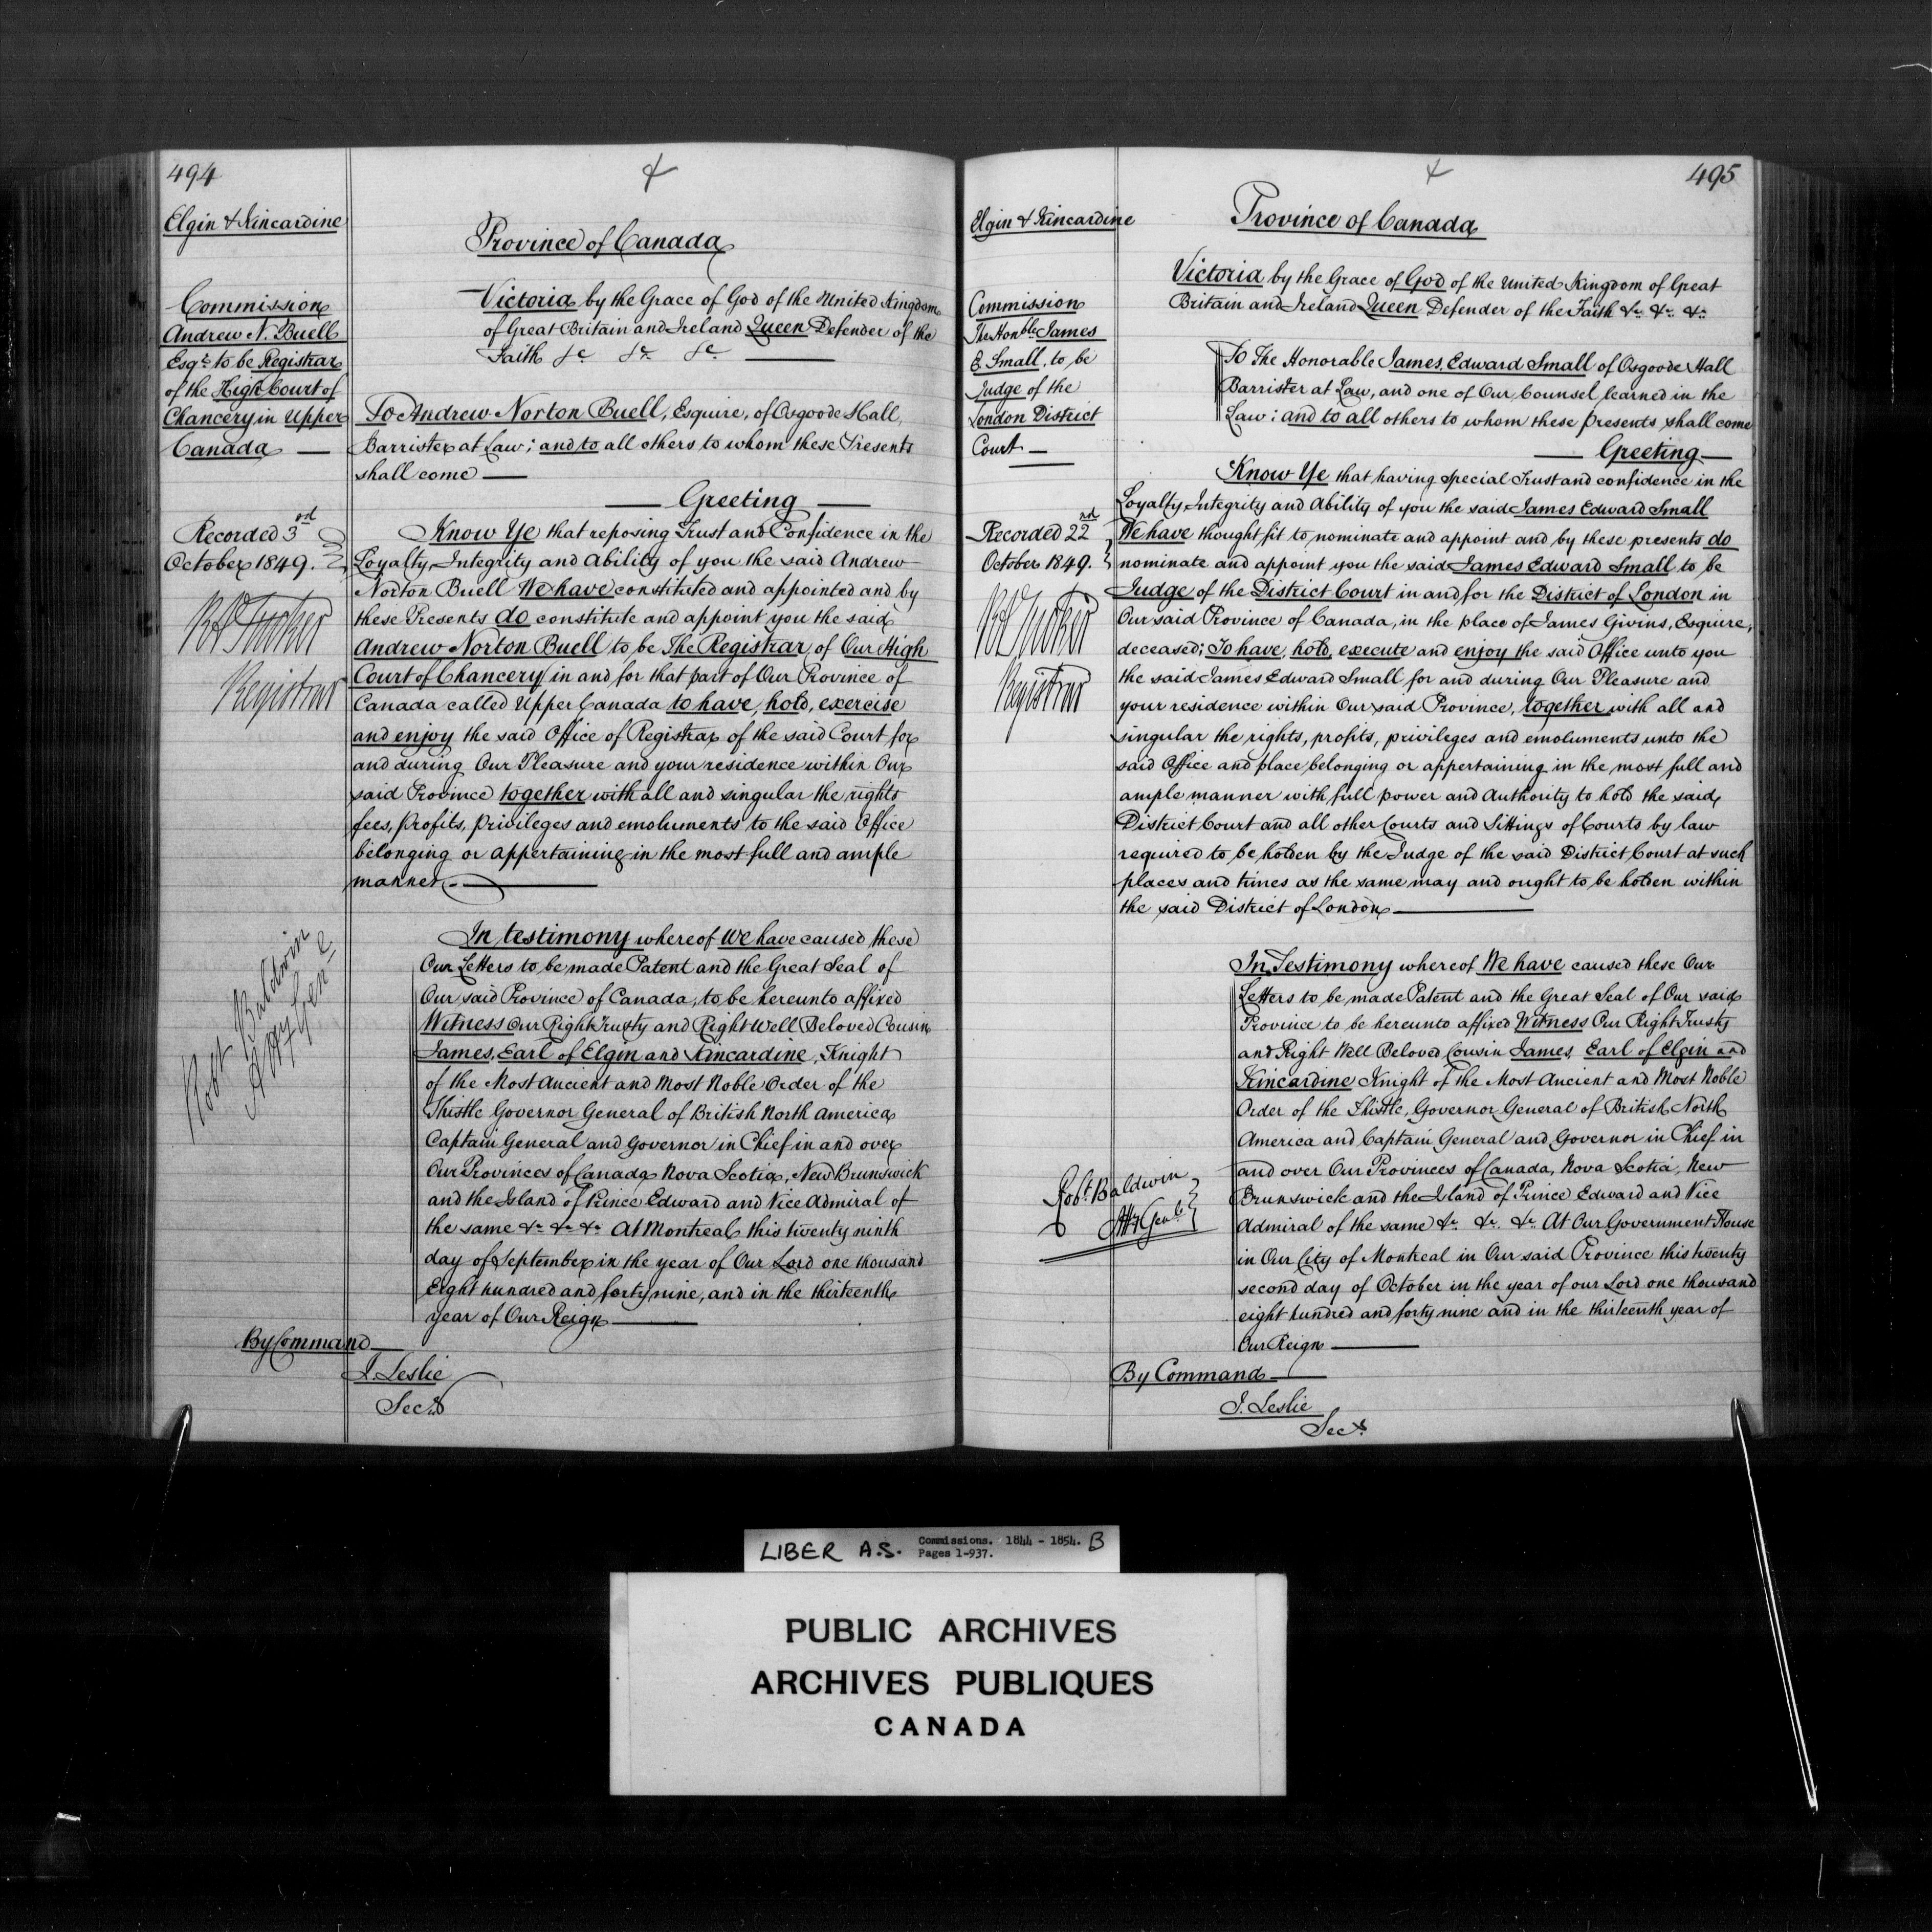 494
Elgin & Kincardine
Commission
Andrew N. Buell
Esqr. to be Registrar
of the High Court of
Chancery in Upper
Canada —
Recorded 3rd
October 1849.
R A Tucker
Registrar
Robt Baldwin
Atty Genl
Province of Canada
Victoria by the Grace of God of the United Kingdom
of Great Britain and Ireland Queen Defender of the
Faith &c &c &c —
To Andrew Norton Buell, Esquire, of Osgoode Hall,
Barrister at Law; and to all others to whom these Presents
shall come —
— Greeting —
Know Ye that reposing Trust and Confidence in the
Loyalty, Integrity and Ability of you the said Andrew
Norton Buell We have constituted and appointed and by
these Presents do constitute and appoint you the said
Andrew Norton Buell to be The Registrar of Our High
Court of Chancery in and for that part of Our Province of
Canada called Upper Canada to have, hold, exercise
and enjoy the said Office of Registrar of the said Court for
and during Our Pleasure and your residence within Our
said Province together with all and singular the rights
fees, profits, privileges and emoluments to the said Office
belonging or appertaining in the most full and ample
manner. —
In testimony whereof We have caused these
Our Letters to be made Patent and the Great Seal of
Our said Province of Canada, to be hereunto affixed
Witness Our Right Trusty and Right Well Beloved Cousin
James, Earl of Elgin and Kincardine, Knight
of the Most Ancient and Most Noble Order of the
Thistle Governor General of British North America
Captain General and Governor in Chief in and over
Our Provinces of Canada Nova Scotia, New Brunswick
and the Island of Prince Edward and Vice Admiral of
the same &c &c &c At Montreal this twenty ninth
day of September in the year of Our Lord one thousand
Eight hundred and forty nine, and in the thirteenth
year of Our Reign —
By Command —
J. Leslie
Secy
495
Elgin & Kincardine
Commission
The Honble James
E. Small, to be
Judge of the
London District
Court —
Recorded 22nd
October 1849.
R A Tucker
Registrar
Robt. Baldwin
Atty Genl.
Province of Canada
Victoria by the Grace of God of the United Kingdom of Great
Britain and Ireland Queen Defender of the Faith &c. &c. &c.
To The Honorable James Edward Small of Osgoode Hall
Barrister at Law, and one of Our Counsel learned in the
Law; and to all others to whom these presents shall come
— Greeting —
Know Ye that having special Trust and confidence in the
Loyalty, Integrity and Ability of you the said James Edward Small
We have thought fit to nominate and appoint and by these presents do
nominate and appoint you the said James Edward Small to be
Judge of the District Court in and for the District of London in
Our said Province of Canada, in the place of James Givins, Esquire,
deceased; To have, hold, execute and enjoy the said Office unto you
the said James Edward Small for and during Our Pleasure and
your residence within Our said Province, together with all and
singular the rights, profits, privileges and emoluments unto the
said Office and place belonging or appertaining in the most full and
ample manner with full power and Authority to hold the said
District Court and all other Courts and Sittings of Courts by law
required to be holden by the Judge of the said District Court at such
places and times as the same may and ought to be holden within
the said District of London —
In Testimony whereof We have caused these Our
Letters to be made Patent and the Great Seal of Our said
Province to be hereunto affixed Witness Our Right Trusty
and Right Well Beloved Cousin James Earl of Elgin and
Kincardine Knight of the Most Ancient and Most Noble
Order of the Thistle, Governor General of British North
America and Captain General and Governor in Chief in
and over Our Provinces of Canada, Nova Scotia, New
Brunswick and the Island of Prince Edward and Vice
Admiral of the same &c. &c. &c. At Our Government House
in Our City of Montreal in Our said Province this twenty
second day of October in the year of our Lord one thousand
eight hundred and forty nine and in the thirteenth year of
Our Reign —
By Command —
J. Leslie
Secy.
LIBER A.S. Commissions. 1844 - 1854. B
Pages 1-937.
PUBLIC ARCHIVES
ARCHIVES PUBLIQUES
CANADA